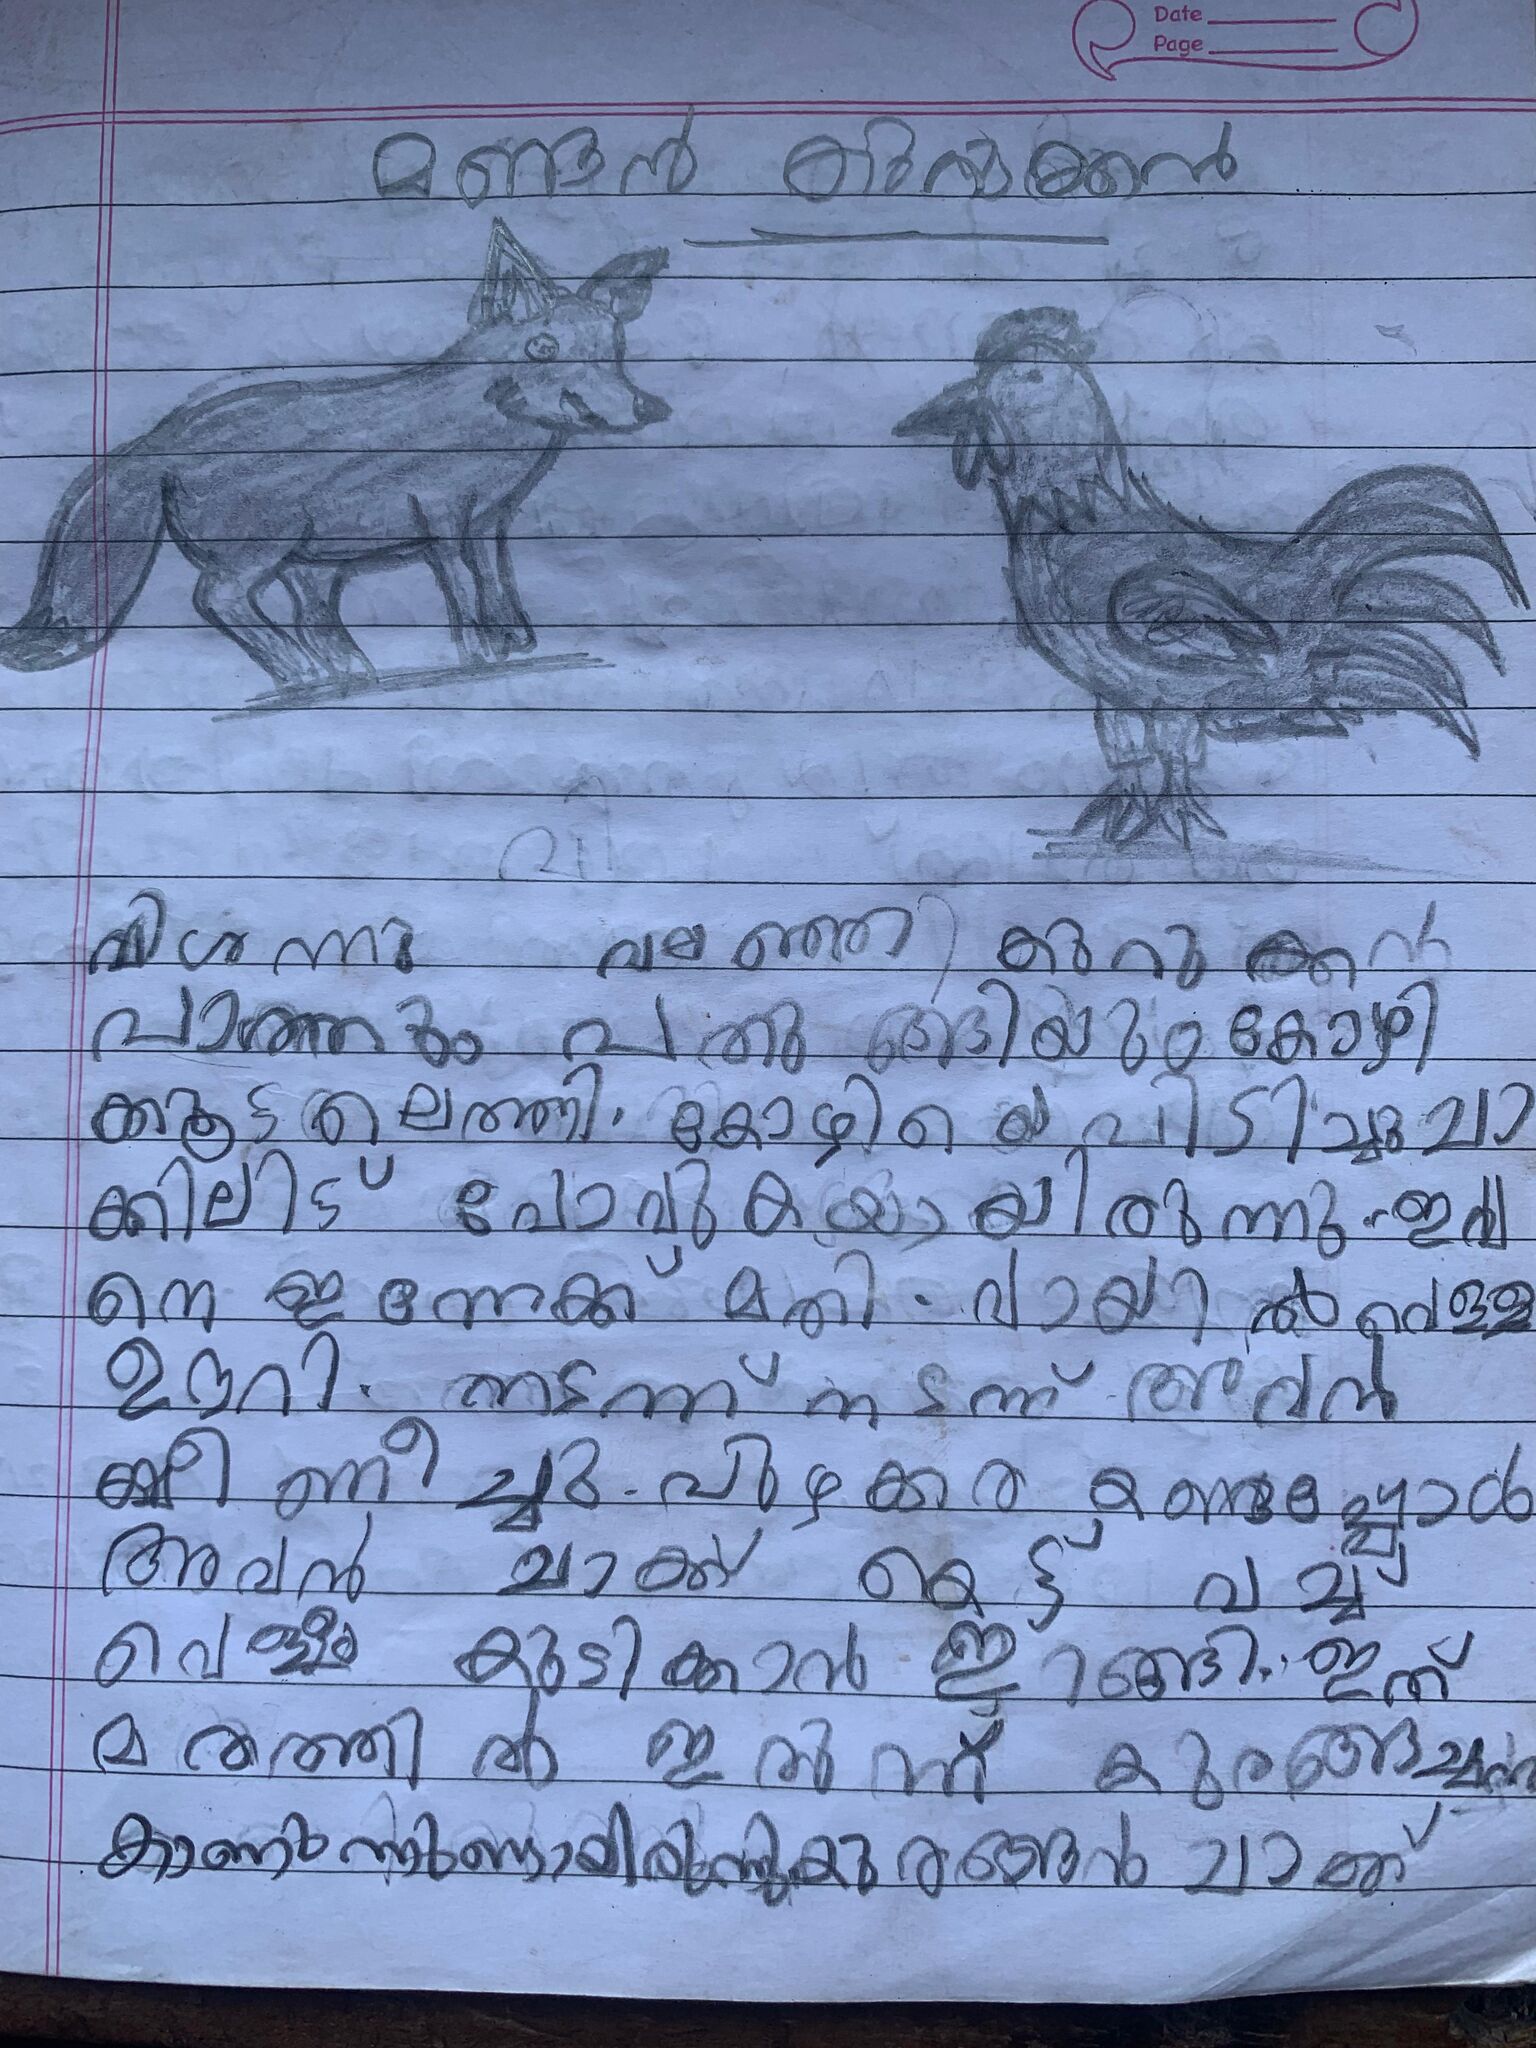 Date
Page
മണ്ടൻ കുറുക്കൻ
വി
വിശന്നു വലഞ്ഞ കുറുക്കൻ
പാത്തും പതുങ്ങിയും കോഴി
ക്കൂട്ടിലെത്തി. കോഴിയെ പിടിച്ചു ചാ
ക്കിലിട്ട് പോവുകയായിരുന്നു. ഇവ
നെ ഇന്നേക്ക് മതി. വായിൽ വെള്ള
ഊറി. നടന്ന് നടന്ന് അവൻ
ക്ഷീണീച്ചു. പുഴക്കര കണ്ടപ്പോൾ
അവൻ ചാക്ക് കെട്ട് വച്ച്
വെള്ളം കുടിക്കാൻ ഇറങ്ങി. ഇത്
മരത്തിൽ ഇരുന്ന് കുരങ്ങച്ചൻ
കാണുന്നുണ്ടായിരുന്നു കുരങ്ങൻ ചാക്ക്